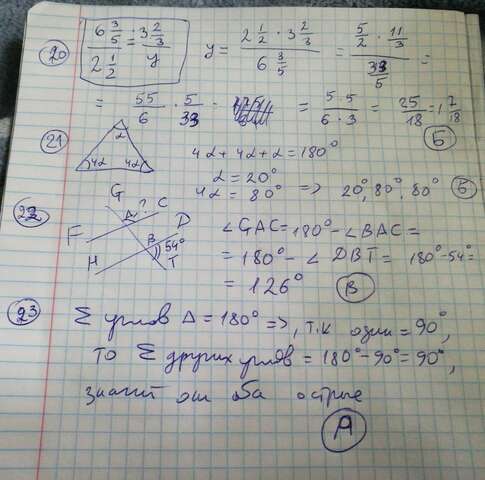 20) 6 3/5 : 2 1/2 = 3 2/3 : y   y = (2 1/2 · 3 2/3) / (6 3/5) = (5/2 · 11/3) / (33/5) =
= 55/6 · 5/33 = (5·5)/(6·3) = 25/18 = 1 7/18   Б
21) α 4α 4α   4α + 4α + α = 180°
α = 20°
4α = 80° => 20°, 80°, 80° Б
22) G A ? C F D B 54° H T   ∠GAC = 180° - ∠BAC =
= 180° - ∠DBT = 180° - 54° =
= 126°   В
23) Σ углов Δ = 180° =>, т.к один = 90°,
то Σ других углов = 180° - 90° = 90°,
значит они оба острые
А